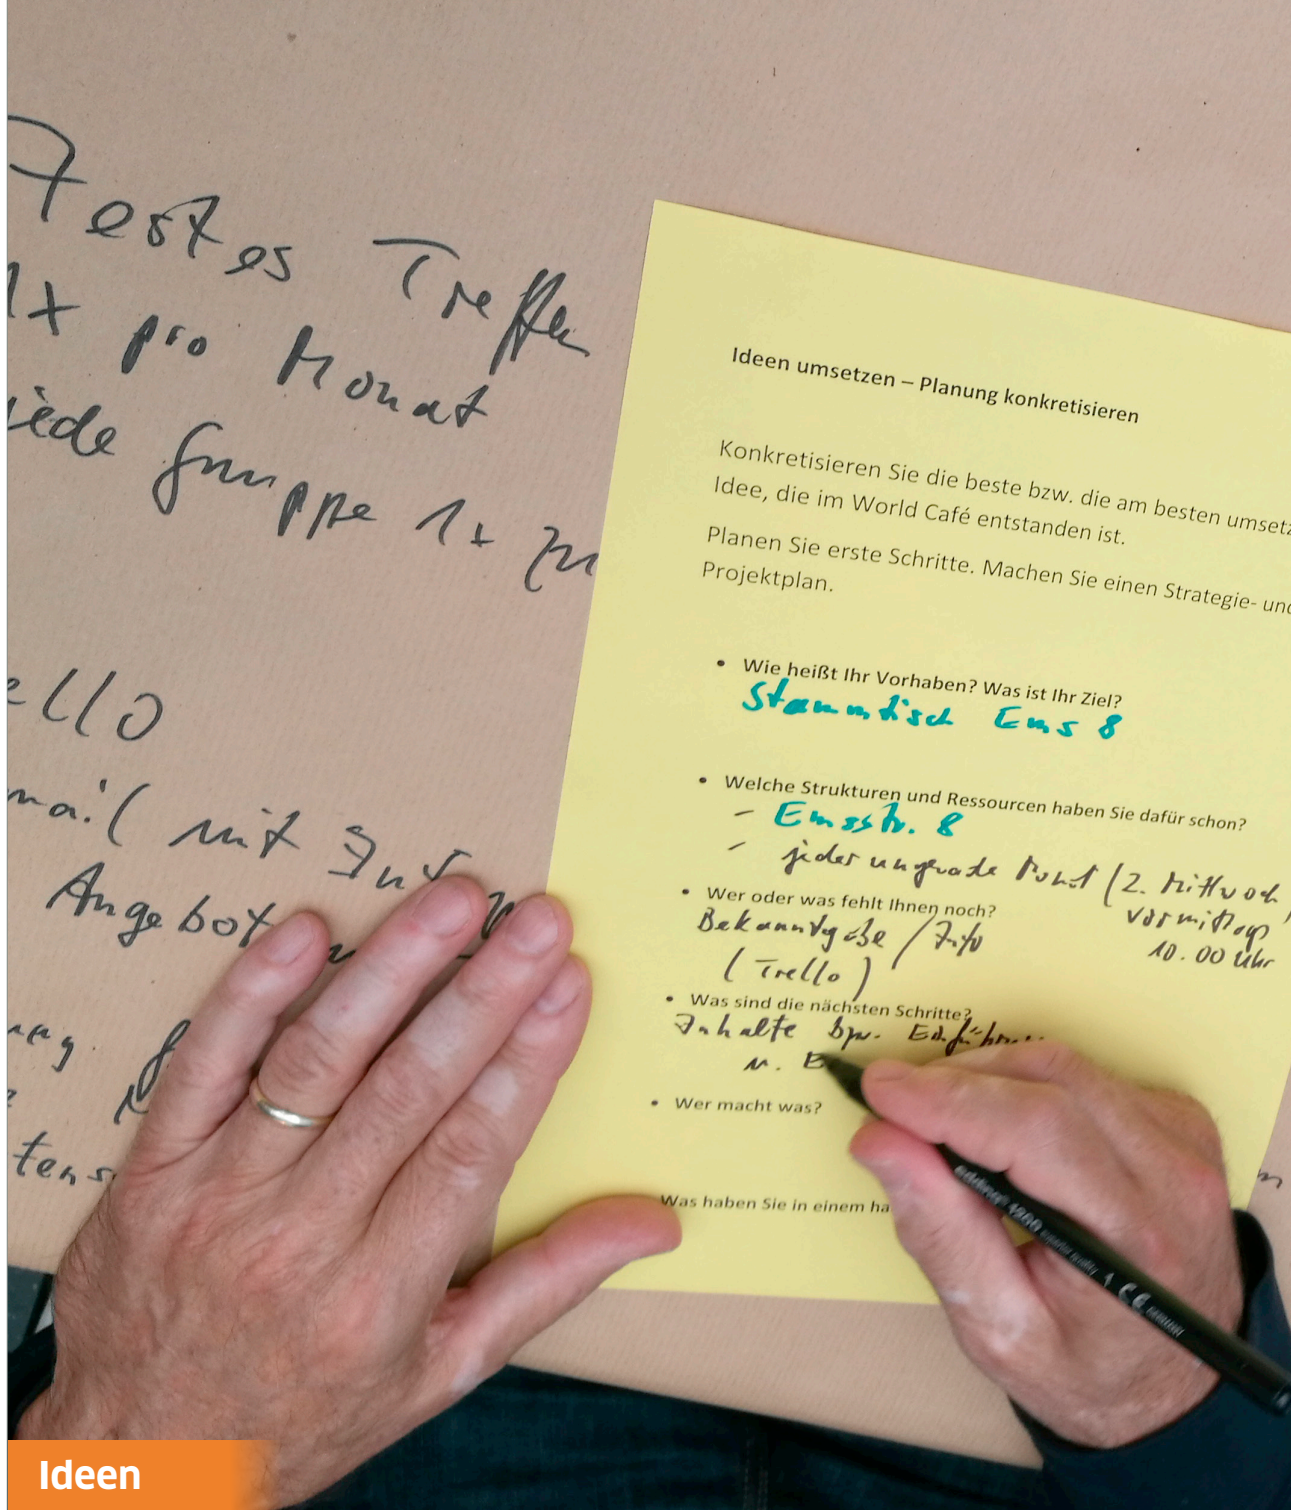 Festes Treffen
1x pro Monat
jede Gruppe 1x
ello
mail mit Info
Angebot
tens
Ideen umsetzen – Planung konkretisieren
Konkretisieren Sie die beste bzw. die am besten umsetz
Idee, die im World Café entstanden ist.
Planen Sie erste Schritte. Machen Sie einen Strategie- und
Projektplan.
• Wie heißt Ihr Vorhaben? Was ist Ihr Ziel?
Stammtisch Ems 8
• Welche Strukturen und Ressourcen haben Sie dafür schon?
– Emsstr. 8
– jeder ungerade Monat (2. Mittwoch
vormittags
10.00 Uhr
• Wer oder was fehlt Ihnen noch?
Bekanntgabe / Info
(Trello)
• Was sind die nächsten Schritte?
Inhalte bzw.
u. E
• Wer macht was?
Was haben Sie in einem ha
edding 1980
1 CE
Ideen